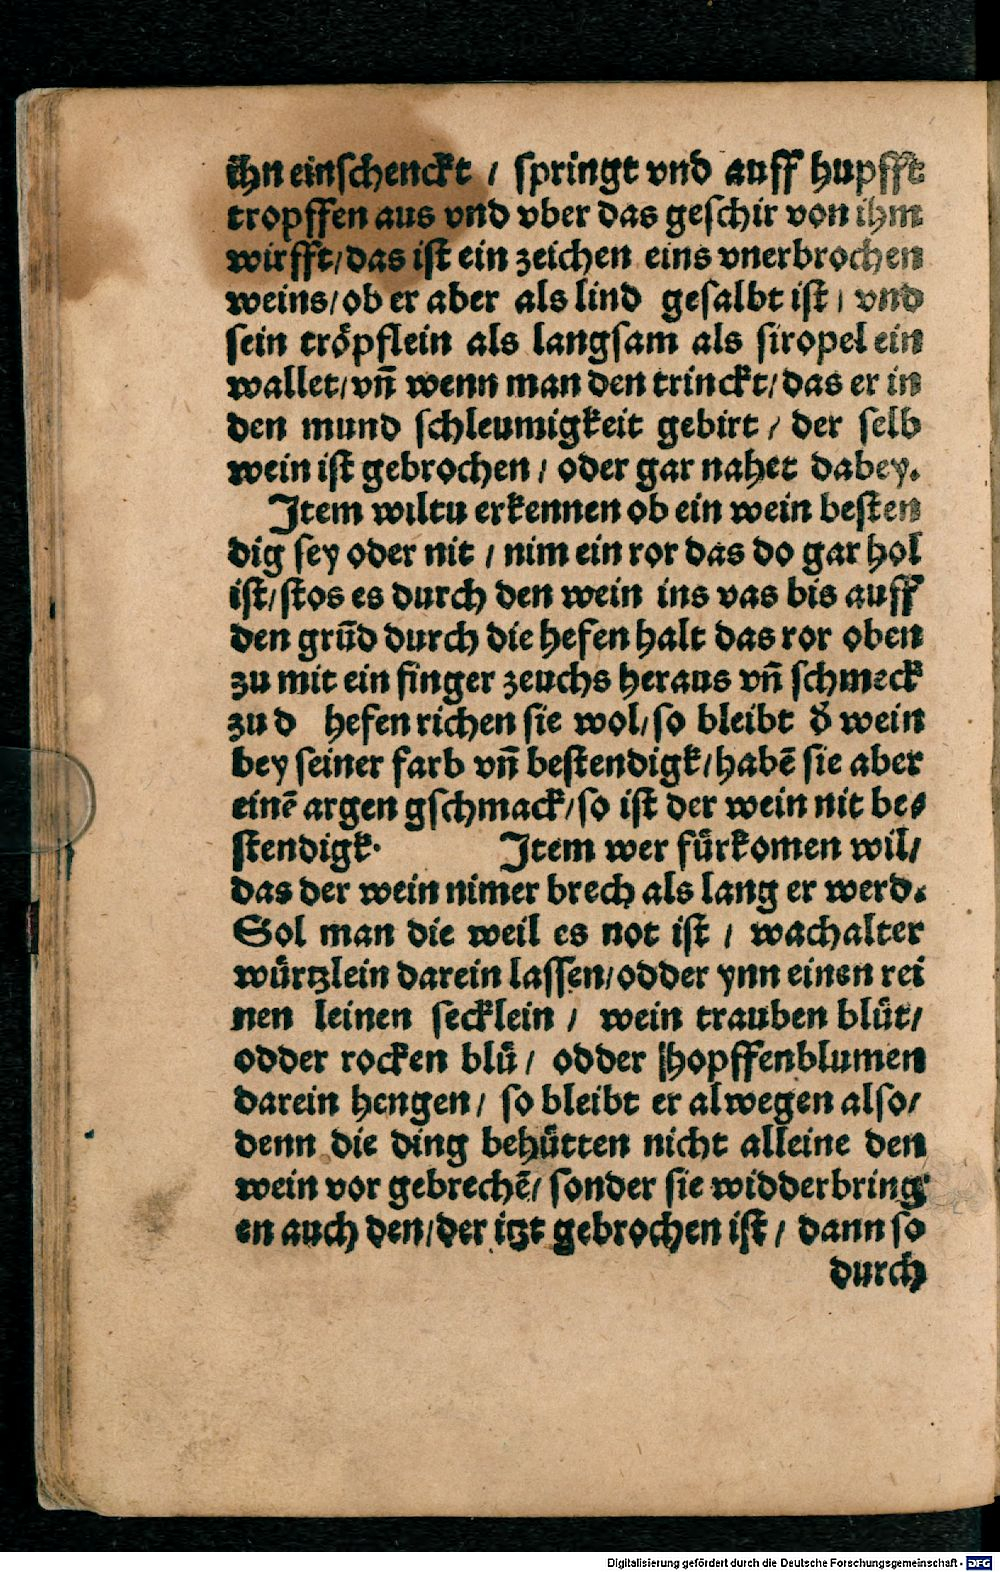 ihn einschenckt / springt vnd auff hupfft
tropffen aus vnd vber das geschir von ihm
wirfft/das ist ein zeichen eins vnerbrochen
weins/ob er aber als lind gesalbt ist/ vnd
sein tröpflein als langsam als siropel ein
wallet/vñ wenn man den trinckt/das er in
den mund schleumigkeit gebirt / der selb
wein ist gebrochen / oder gar nahet dabey.
Item wiltu erkennen ob ein wein besten
dig sey oder nit / nim ein ror das do gar hol
ist/stos es durch den wein ins vas bis auff
den grūd durch die hefen halt das ror oben
zu mit ein finger zeuchs heraus vñ schmeck
zu d hefen richen sie wol/so bleibt d̄ wein
bey seiner farb vñ bestendigk/habē sie aber
einē argen gschmack/so ist der wein nit be⸗
stendigk. Item wer fürkomen wil/
das der wein nimer brech als lang er werd.
Sol man die weil es not ist / wachalter
würtzlein darein lassen/odder ynn einen rei
nen leinen secklein / wein trauben blüt/
odder rocken blü/ odder hopffenblumen
darein hengen/ so bleibt er alwegen also/
denn die ding behütten nicht alleine den
wein vor gebrechē/ sonder sie widderbring
en auch den/der itzt gebrochen ist / dann so
durch
Digitalisierung gefördert durch die Deutsche Forschungsgemeinschaft - DFG